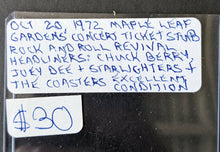 OCT 20, 1972 MAPLE LEAF
GARDENS' CONCERT TICKET STUB
ROCK AND ROLL REVIVAL
HEADLINERS: CHUCK BERRY,
JOEY DEE + STARLIGHTERS +
THE COASTERS EXCELLENT
CONDITION
$30